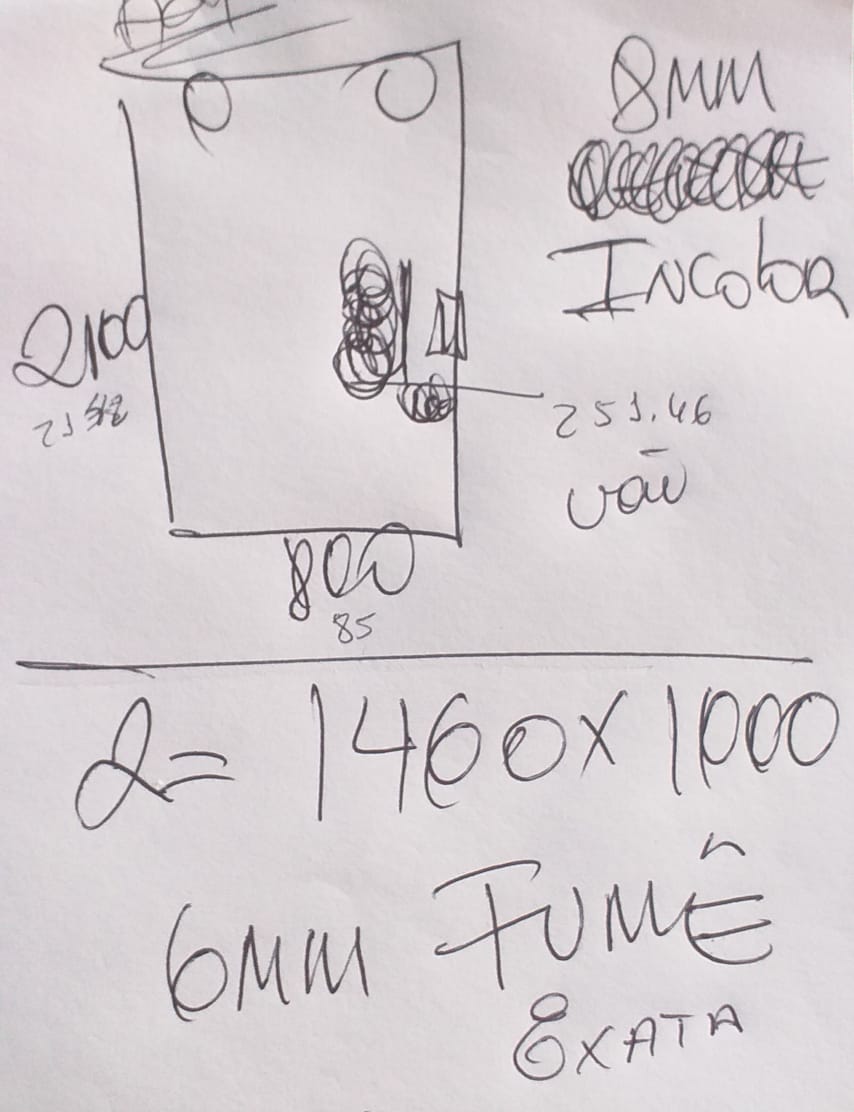 8MM
INCOLOR
2100
251.46
vão
800
85
2= 1460X1000
6MM FUMÊ
EXATA